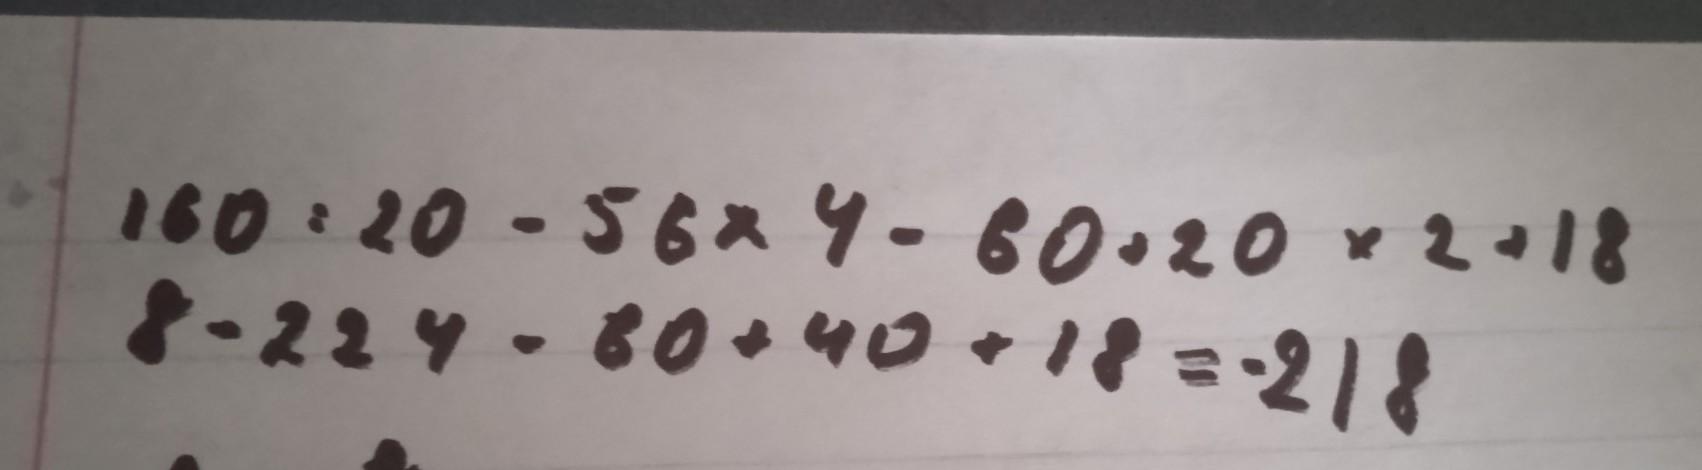 160 : 20 - 56 x 4 - 60 + 20 x 2 + 18
8 - 224 - 60 + 40 + 18 = -218